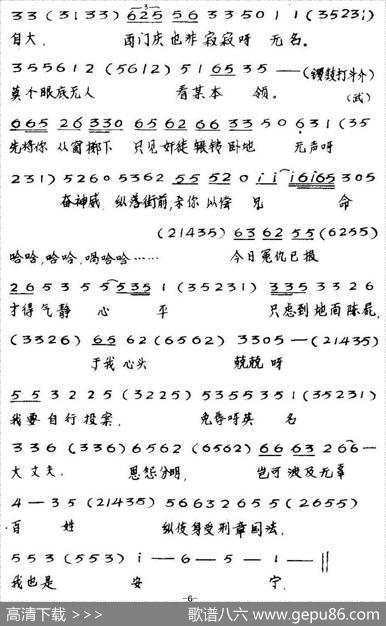 33(3i33)625 56 33501 1(35231)
自大, 西门庆也非寂寂呀 无名。
355612(5612)51 65 35 —(锣鼓打斗介)
莫个眼底无人 看某本 领。(武)
665 26 330 65 62 66 33 50 631(35
先将你 从窗掷下 只见奸徒 辗转卧地 无声呀
231)5260 5362 55 520 ii i6i65 305
奋神威 纵落街前,杀你 以偿 兄 命
(21435)63 62 55(6255)
哈哈,哈哈,呜哈哈…… 今日冤仇已报
265 35 5535 1(35231) 335 3326
才得气静 心 平 只忠到地面陈尸,
(3326)65 62(6562)3305 —(21435)
于我心头 兢兢 呀
55 3225(3225)5355351(35231)
我要自行投案, 免辱呀英 名
336(336)6562(6562)66 63 266—
大丈夫. 恩怨分明, 岂可波及无辜
4—35(21435)56632655(2655)
百 姓 纵使身受刑章国法,
553(553)i—6—5—1—
我也是 安 宁.
-6-
高清下载 >>> 歌谱八六 www.gepu86.com